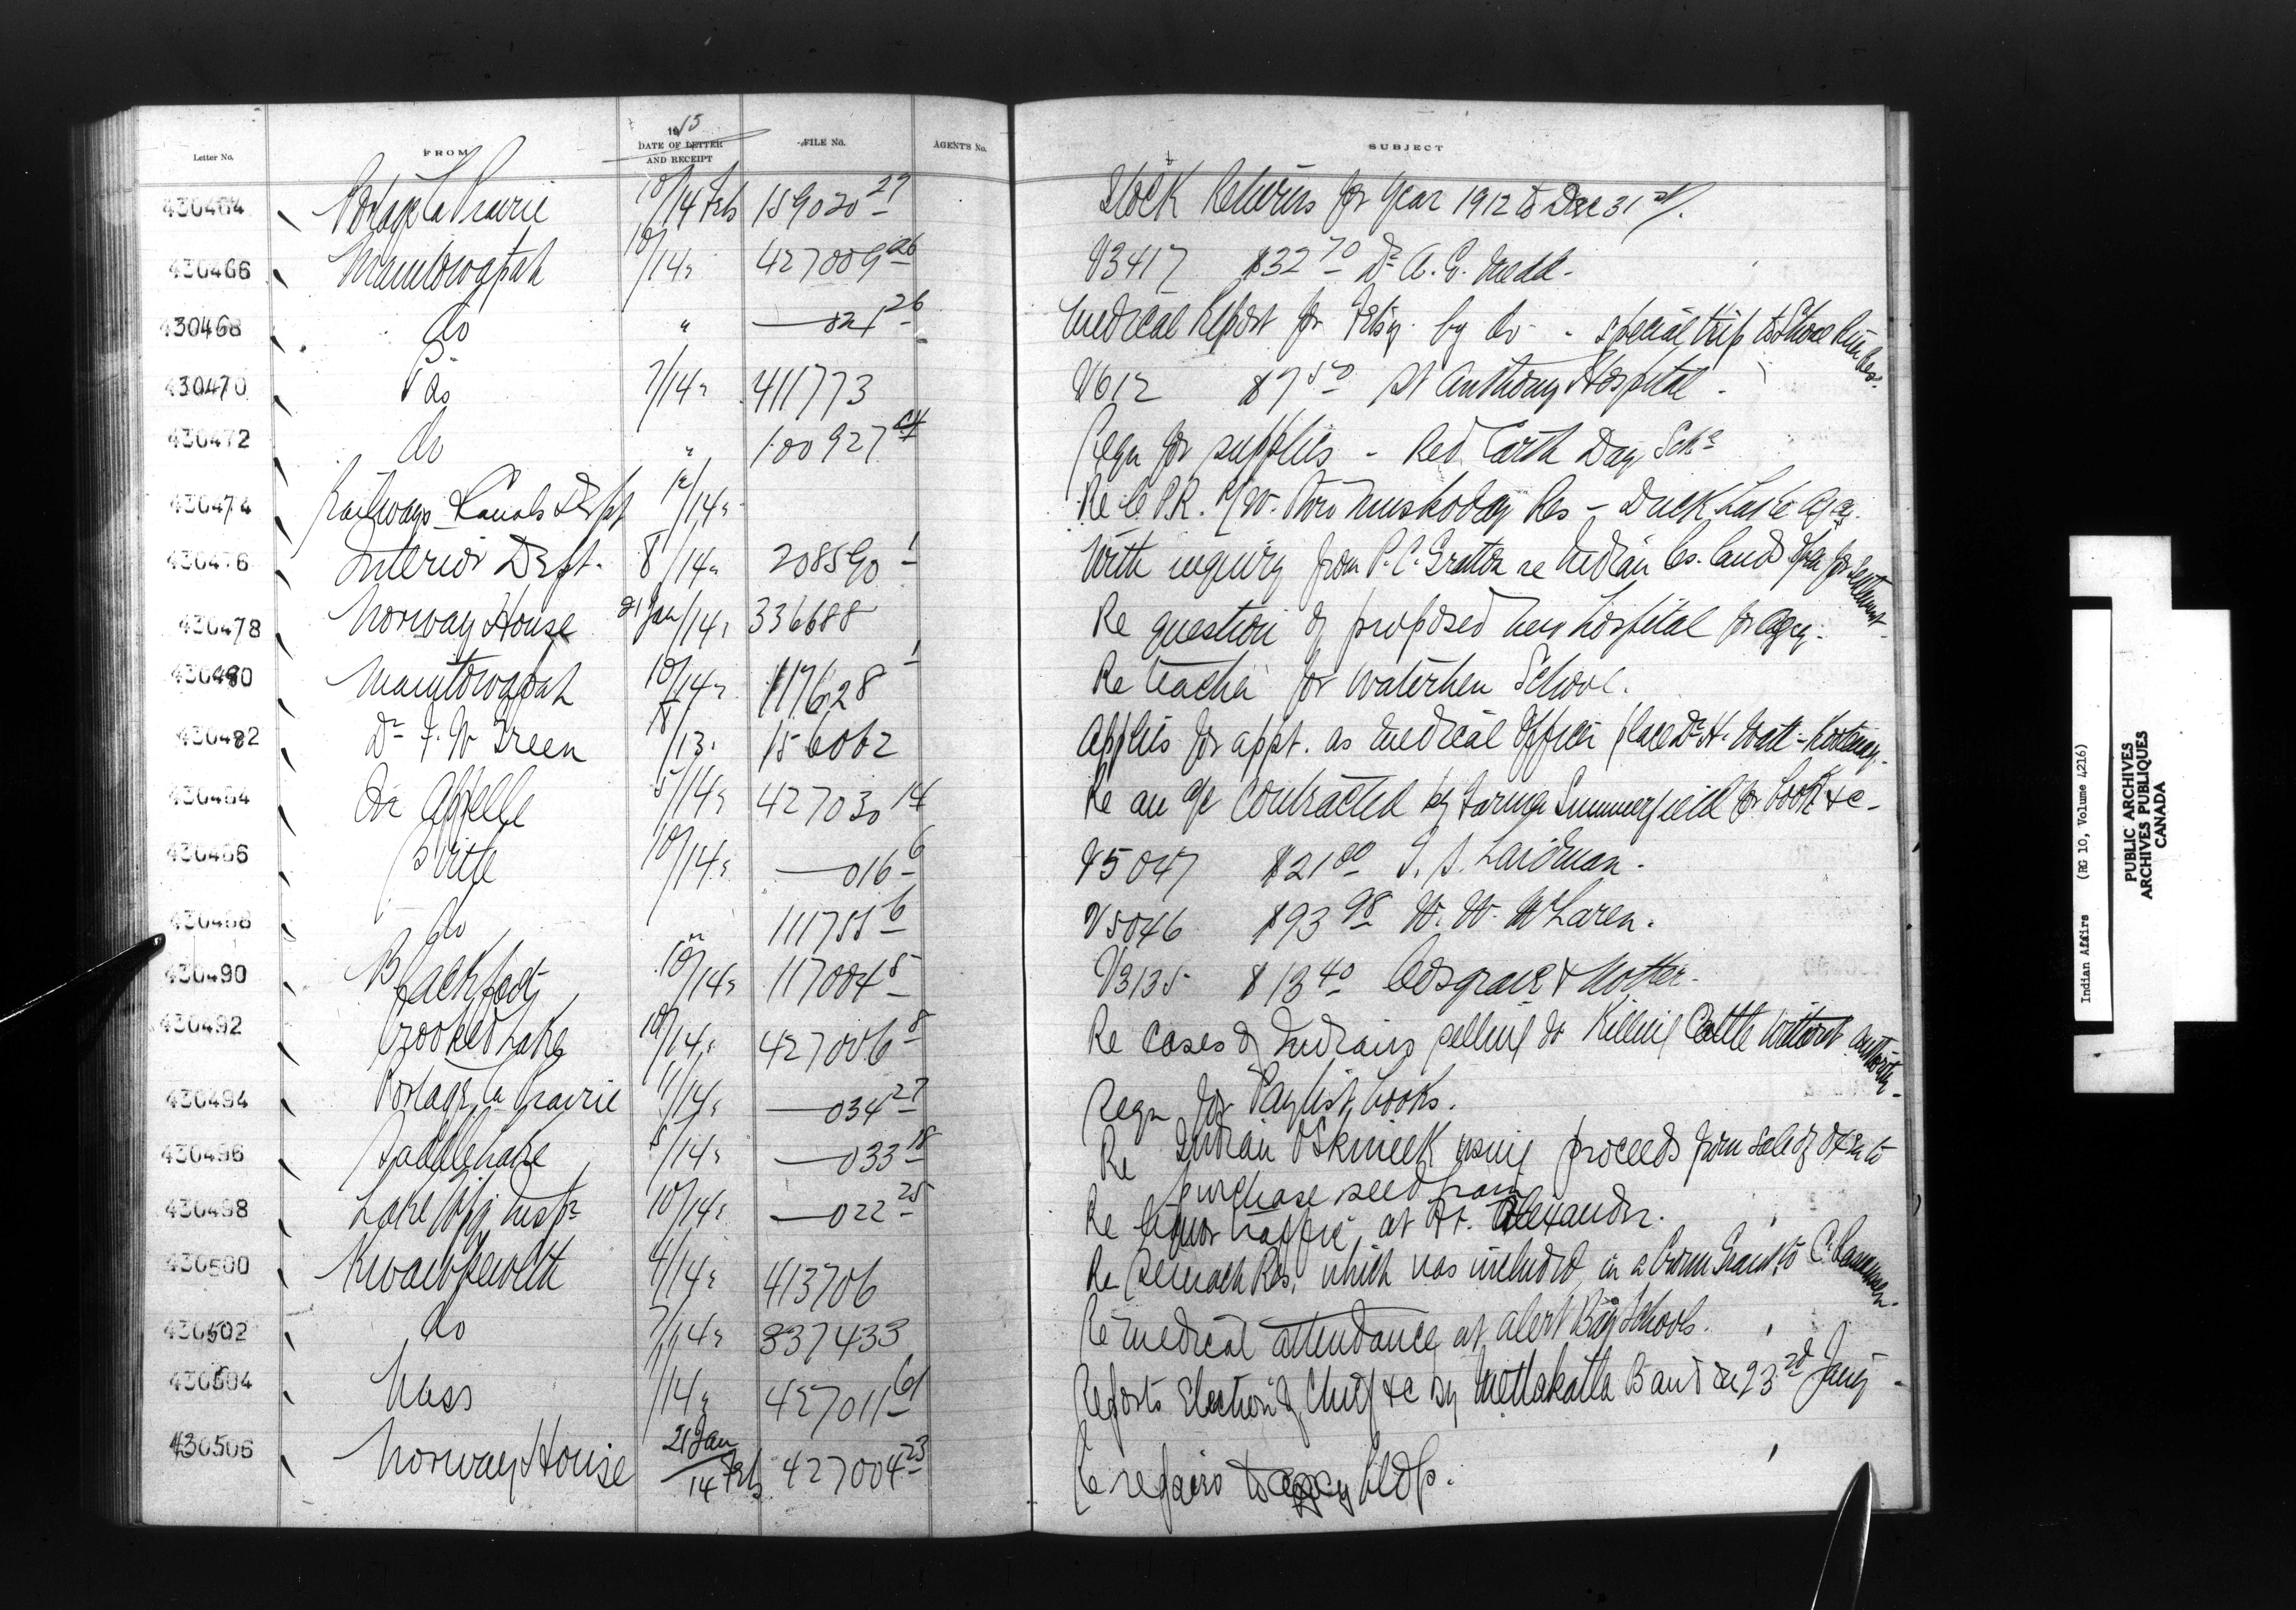 1915
Letter No. FROM DATE OF LETTER AND RECEIPT FILE No. AGENT'S No. SUBJECT
430464 Portage la Prairie 10/14 Feb 159020 27 Stock Returns for year 1912 to Dec 31st/.
430466 Manitowapah 10/14 " 427009 26 V3417 $32 70 Dr A. G. Medd -
430468 do " — 021 26 Medical Report for Feby. by do - special trip to Shoal River Res.
430470 Pas 7/14 " 411773 V612 $7 50 St Anthony Hospital -
430472 do " 100927 Reqn for supplies - Red Earth Day Schl
430474 Railways & Canals Dept 12/14 " Re C.P.R. R/W. thro Muskoday Res - Duck Lake Agcy.
430476 Interior Dept. 8/14 " 208590 1 With inquiry from P. C. Gratton re Indian Res. lands open for settlement.
430478 Norway House 21 Jan/14 " 336688 Re question of proposed new hospital for Agcy.
430480 Manitowapah 10/14 " 117628 1 Re teacher for Waterhen School.
430482 Dr F. W Green /13 " 156062 Applies for appt. as Medical Officer place Dr H. Watt - Kootenay.
430484 Qu Appelle 5/14 " 427030 14 Re an a/c contracted by Farmer Summerfield for books &c -
430486 Birtle 10/14 " — 016 6 V5047 $21 00 S. S. Laidman.
430488 do " 111755 6 V5046 $93 98 W. W. McLaren.
430490 Blackfoot 10/14 " 117004 5 V3135 $13 40 Cosgrave &
430492 Crooked Lake 10/14 " 427006 8 Re cases of Indians selling or Killing Cattle without authority.
430494 Portage la Prairie 11/14 " — 034 27 Reqn for Paylist books.
430496 Saddle Lake 5/14 " — 033 18 Re Indian using proceeds from sale of oxen to
purchase seed grain
430498 Lake Wpg Inspr 10/14 " — 022 25 Re liquor traffic at Ft. Alexander.
430500 Kwawkewlth 4/14 " 413706 Re Res. which was included in a Crown Grant to C.
430502 do 7/14 " 337433 Re Medical attendance at Alert Bay Schools.
430504 Nass /14 " 427011 61 Reports Election of Chief &c by Metlakatla Band on 23rd Jany -
430506 Norway House 21 Jan/14 Feb 427004 23 Re repairs to agency bldgs.
Indian Affairs (RG 10, Volume 4216)
PUBLIC ARCHIVES
ARCHIVES PUBLIQUES
CANADA